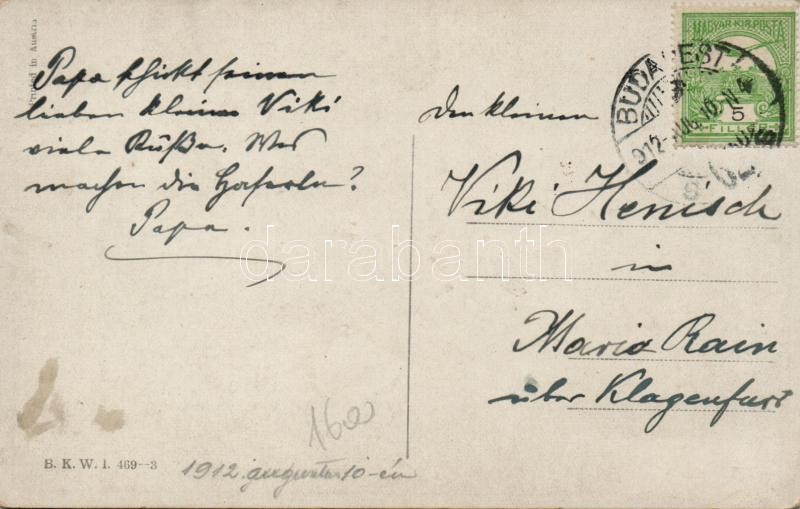 Printed in Austria
Papa schickt seinen
lieben kleinen Viki
viele Küße. Was
machen die Haserln?
Papa.
Den kleinen
Viki Henisch
in
Maria Rain
über Klagenfurt
MAGYAR KIR. POSTA
5
FILLÉR
BUDAPEST
912 AUG 10
1600
B. K. W. I. 469–3
1912. augusztus 10-én
darabanth